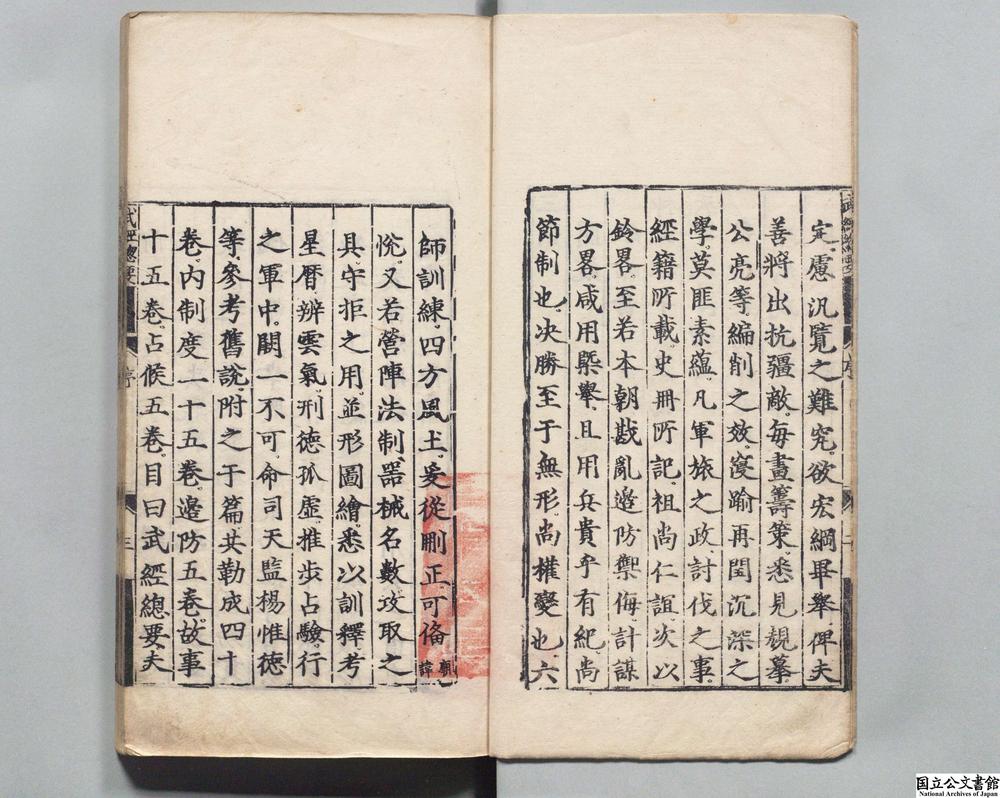 定慮汎覽之難究欲宏綱畢舉俾夫
善將出抗彊敵每畫籌策悉見規摹
公亮等編削之效寖踰再閏沉深之
學莫匪素蘊凡軍旅之政討伐之事
經籍所載史冊所記祖尚仁誼次以
鈐畧至若本朝戡亂邊防禦侮計謀
方畧咸用槩舉且用兵貴乎有紀尚
節制也决勝至于無形尚權變也六
武經總要
序
二
師訓練四方風土爰從刪正可俻廟諱
悅又若營陣法制器械名數攻取之
具守拒之用並形圖繪悉以訓釋考
星曆辨雲氣刑德孤虛推步占驗行
之軍中闕一不可命司天監楊惟德
等參考舊說附之于篇共勒成四十
卷内制度一十五卷邊防五卷故事
十五卷占候五卷目曰武經總要夫
武經總要
序
三
国立公文書館
National Archives of Japan